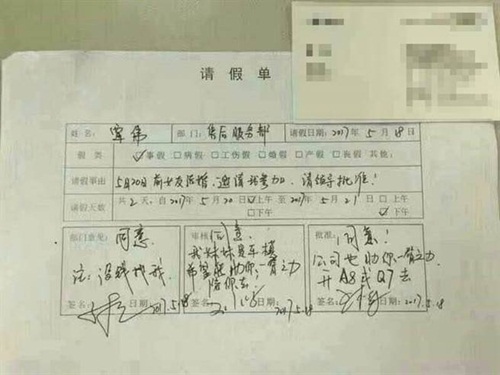 请假单
姓名：军伟 部门：售后服务部 请假日期：2017年5月18日
假类 ☑事假 □病假 □工伤假 □婚假 □产假 □丧假 其他：
请假事由 5月20日前女友结婚，邀请我参加，请领导批准！
请假天数 共2天，自2017年5月20日☑上午 □下午 至2017年5月21日□上午 ☑下午
部门意见：同意
注：没钱找我
签名： 日期：5.18
审核：同意
我妹妹是车模
希望能助你一臂之力
陪你去
签名： 日期：2017.5.18
批准：同意！
公司也助你一臂之力
开A8或Q7去
签名： 日期：2017.5.18